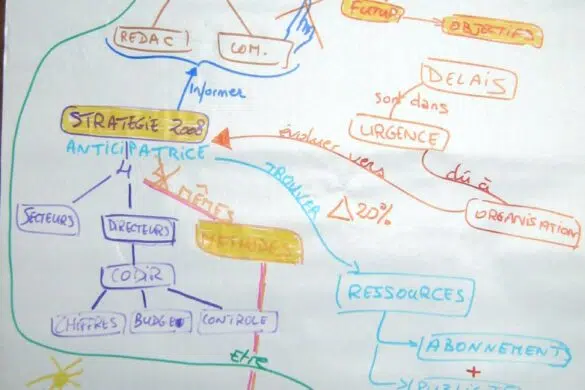 FUTUR
OBJECTIFS
REDAC
COM.
DELAIS
Informer
sont dans
STRATEGIE 2008
URGENCE
évoluer vers
ANTICIPATRICE
4
TROUVER
dû à
MÊMES
20%
SECTEURS
DIRECTEURS
ORGANISATION
METHODES
CODIR
RESSOURCES
CHIFFRES
BUDGET
CONTROLE
ABONNEMENT
Etre
+